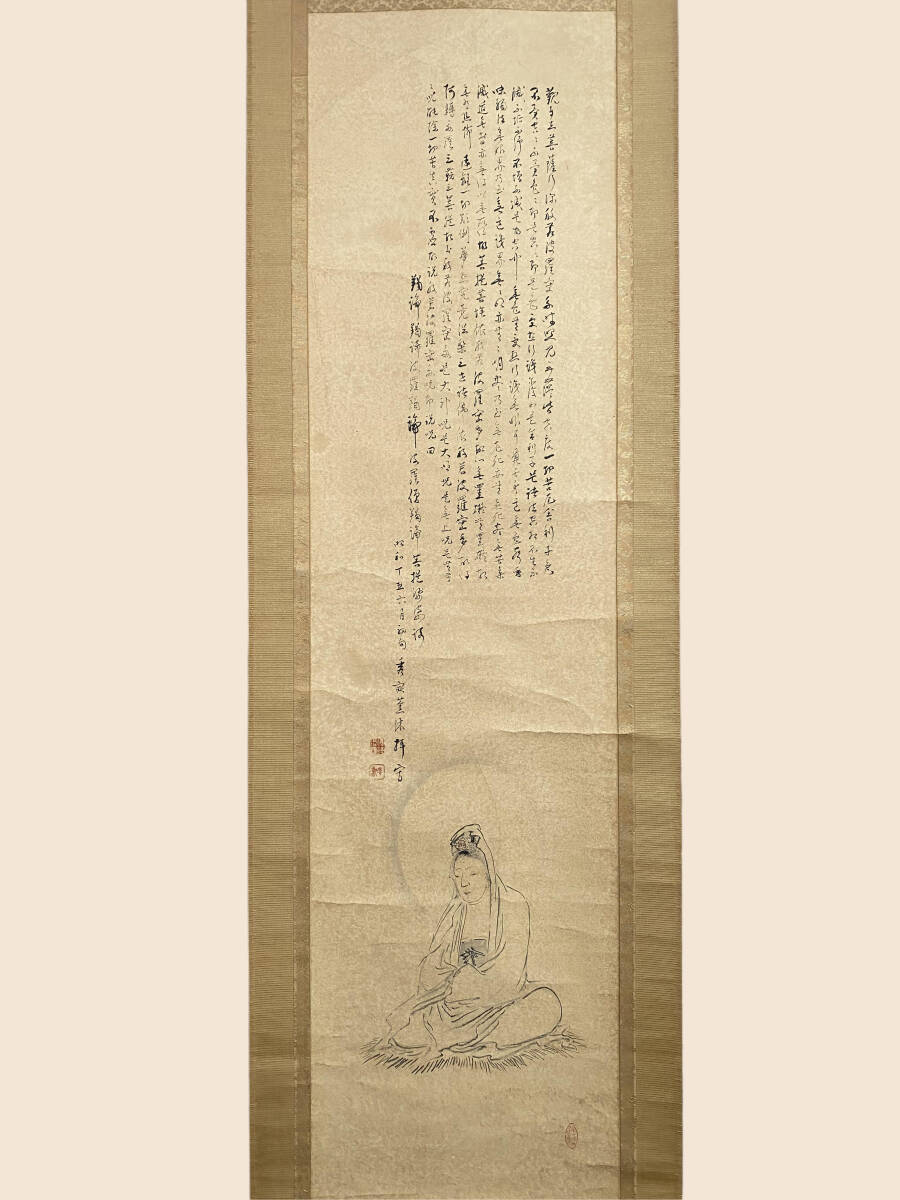 観自在菩薩行深般若波羅蜜多時照見五蘊皆空度一切苦厄舎利子色
不異空々不異色々即是空々即是色受想行識亦復如是舎利子是諸法空相不生不
滅不垢不浄不増不減是故空中無色無受想行識無眼耳鼻舌身意無色声香
味触法無眼界乃至無意識界無々明亦無々明尽乃至無老死亦無老死尽無苦集
滅道無智亦無得以無所得故菩提薩埵依般若波羅蜜多故心無罣礙無罣礙故
無有恐怖遠離一切顛倒夢想究竟涅槃三世諸仏依般若波羅蜜多故得
阿耨多羅三藐三菩提故知般若波羅蜜多是大神呪是大明呪是無上呪是無等
々呪能除一切苦真実不虚故説般若波羅蜜多呪即説呪曰
羯諦羯諦波羅羯諦波羅僧羯諦菩提薩婆訶
昭和丁丑六月初旬 秀 薫沐拝写